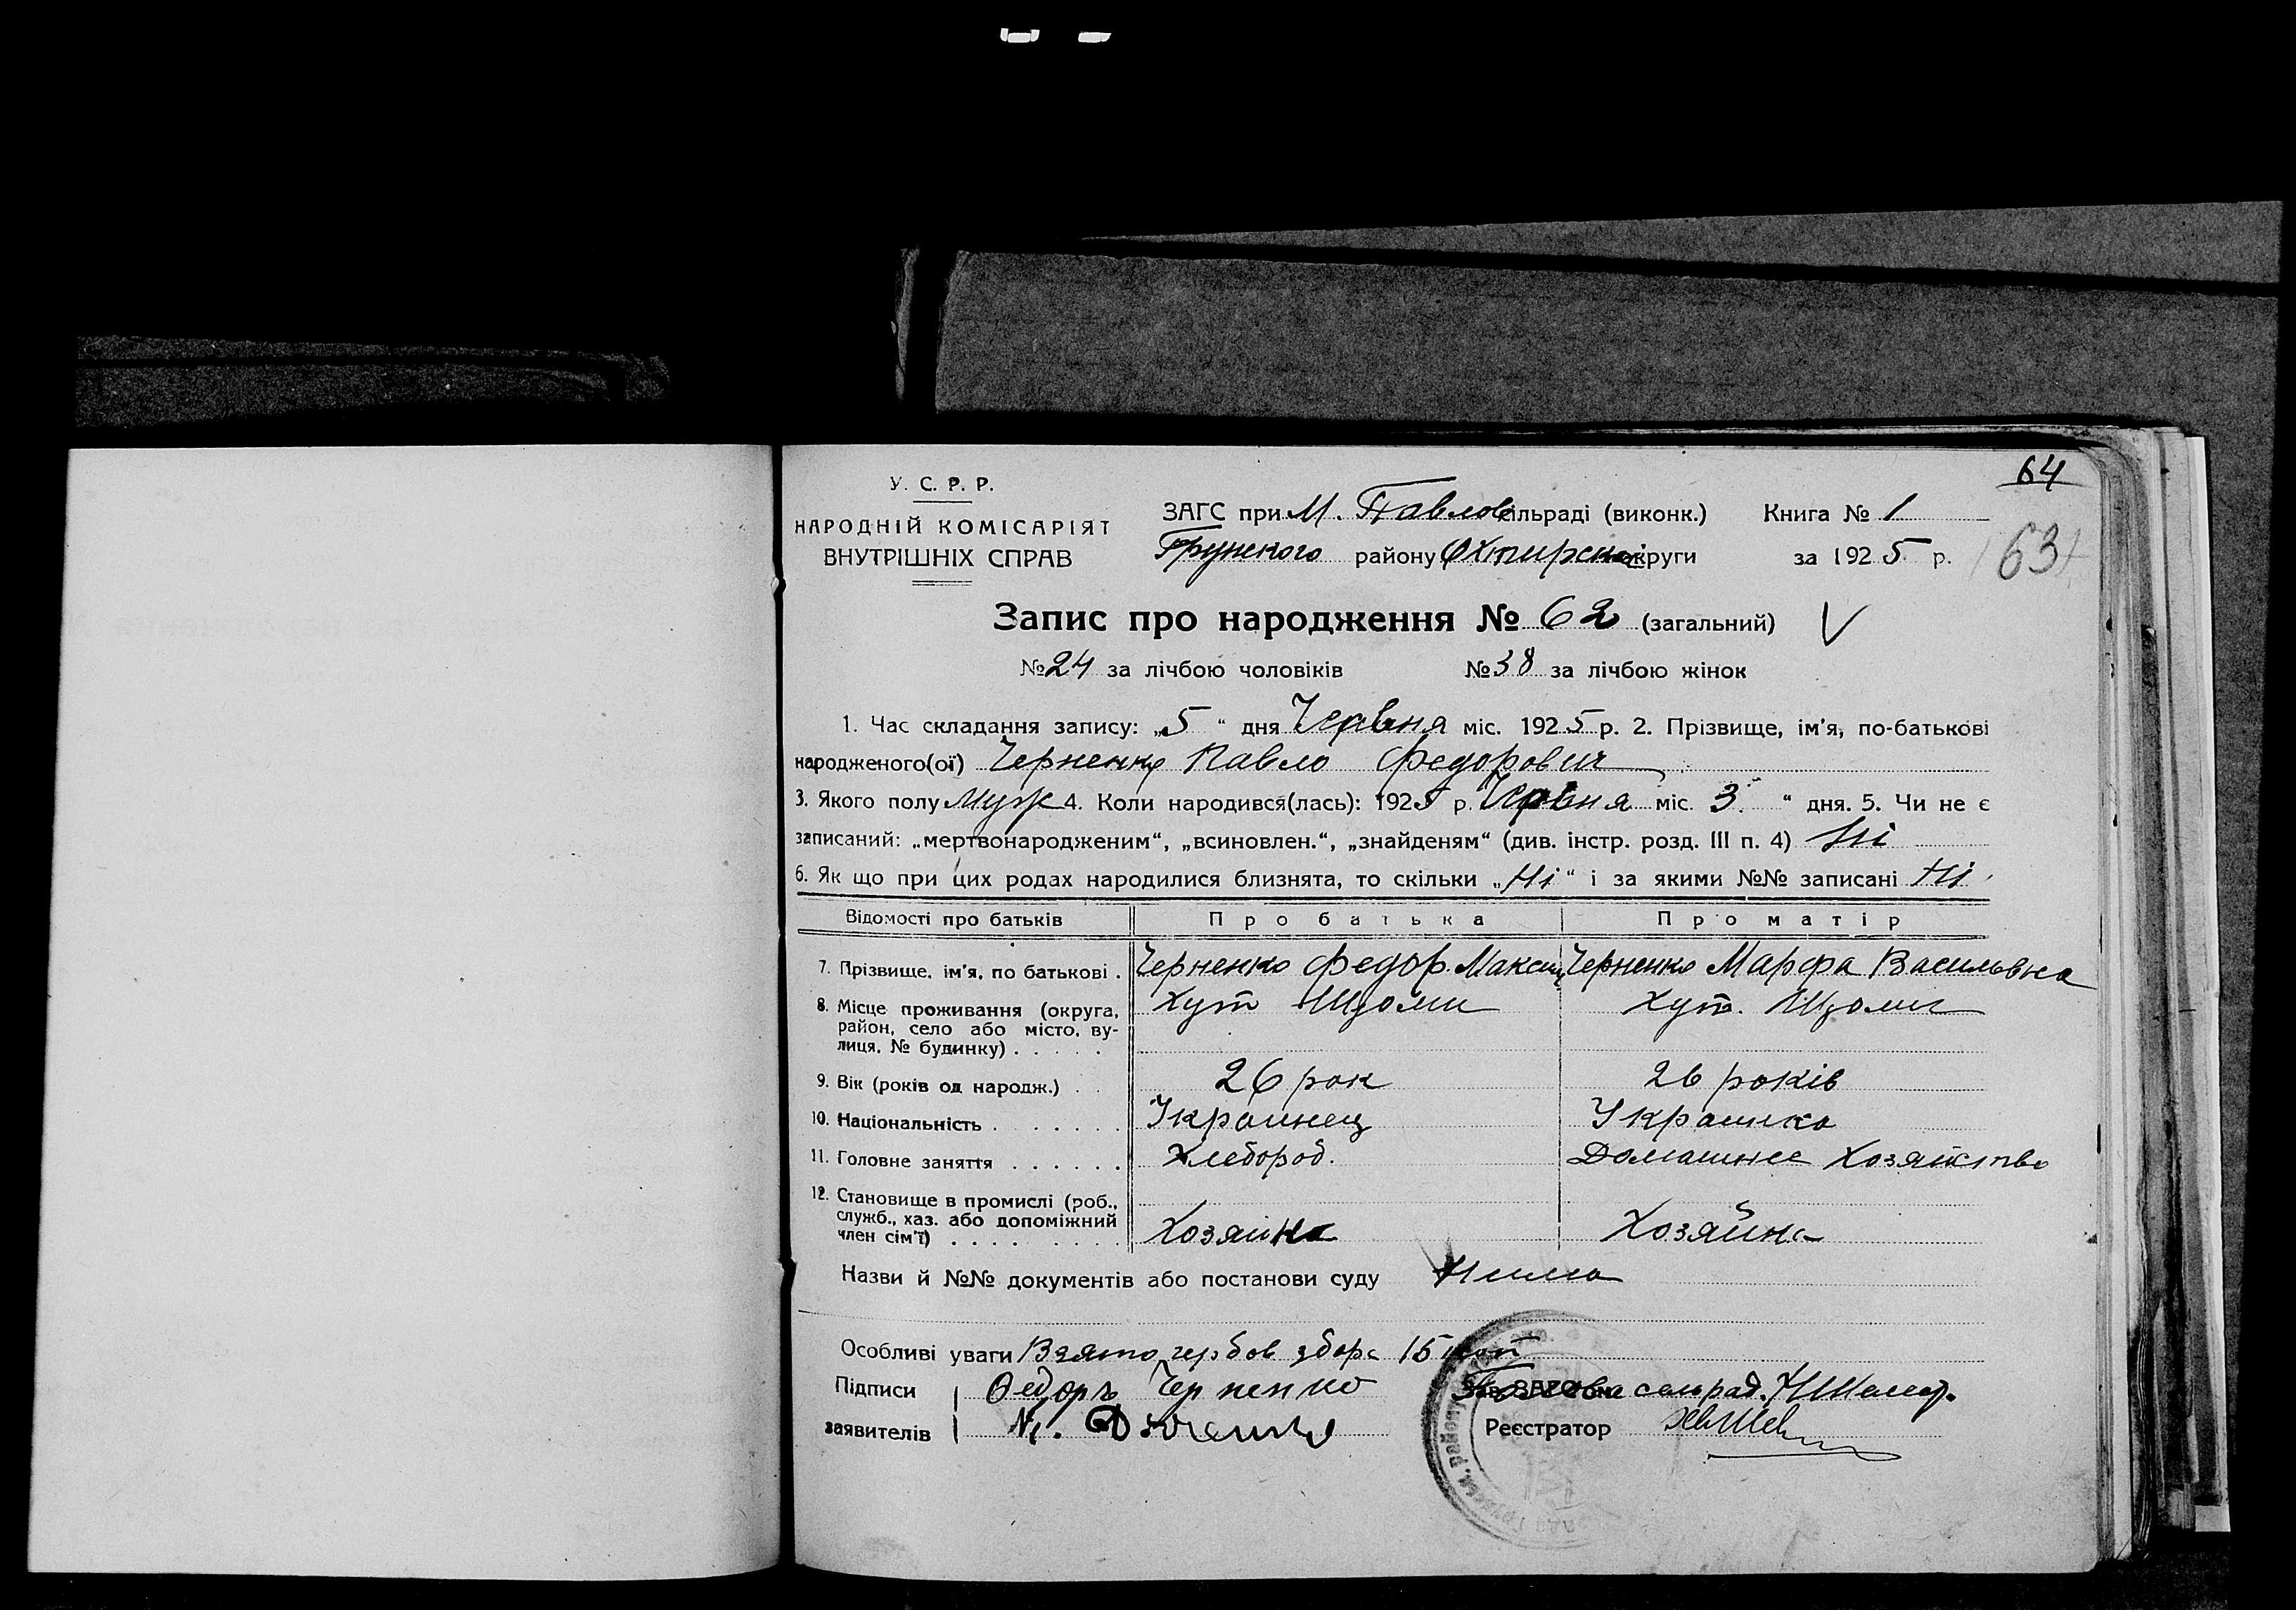 64
У. С. Р. Р.
НАРОДНІЙ КОМІСАРІЯТ
ВНУТРІШНІХ СПРАВ
ЗАГС при М. Павлов сільраді (виконк.) Книга № 1
Грунского району Охтирскої округи за 1925 р.
63
Запис про народження № 62 (загальний) V
№ 24 за лічбою чоловіків № 38 за лічбою жінок
1. Час складання запису: „5“ дня Червня міс. 1925 р. 2. Прізвище, ім'я, по-батькові
народженого(ої) Черненко Павло Федорович
3. Якого полу Муж 4. Коли народився(лась): 1925 р. Червня міс. 3 “ дня. 5. Чи не є
записаний: „мертвонародженим“, „всиновлен.“, „знайденям“ (див. інстр. розд. III п. 4) Ні
6. Як що при цих родах народилися близнята, то скільки „Ні“ і за якими №№ записані Ні
Відомості про батьків Про батька Про матір
7. Прізвище, ім'я, по батькові . Черненко Федор. Максим Черненко Марфа Васильевна
8. Місце проживання (округа, Хут Шзоми Хут. Шзоми
район, село або місто, ву-
лиця, № будинку) . . . . .
9. Вік (років од народж.) . . 26 рок 26 років
10. Національність . . . . . . . Украинец Украинка
11. Головне заняття . . . . . . Хлебороб. Домашнее Хозяйство
12. Становище в промислі (роб.,
служб., хаз. або допоміжний
член сім'ї) . . . . . . . . . Хозяина Хозяйна
Назви й №№ документів або постанови суду Нима
Особливі уваги Взято гербов збора 15 коп
Підписи Федоръ Черненко Зав. ЗАГС'ом сельрад.
заявителів
Реєстратор